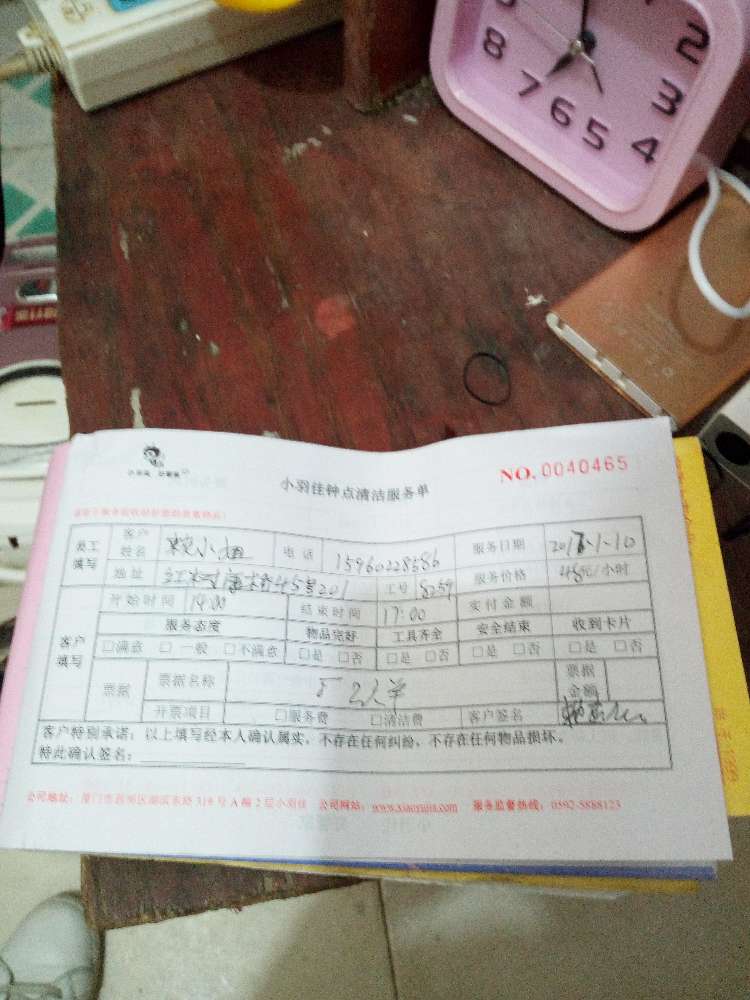 8 7 6 5 4 3 2
NO. 0040465
小羽佳钟点清洁服务单
员工填写 客户姓名 赖小姐 电话 15960228586 服务日期
地址 工号 8259 服务价格 /小时
客户填写 开始时间 14:00 结束时间 17:00 实付金额
服务态度 物品完好 工具齐全 安全结束 收到卡片
□满意 □一般 □不满意 □是 □否 □是 □否 □是 □否 □是 □否
票据 票据名称 票据金额
开票项目 □服务费 □清洁费 客户签名
客户特别承诺：以上填写经本人确认属实，不存在任何纠纷，不存在任何物品损坏。
特此确认签名：
公司地址：厦门市思明区湖滨东路319号A幢2层小羽佳 公司网站：www.xiaoyujia.com 服务监督热线：0592-5888123